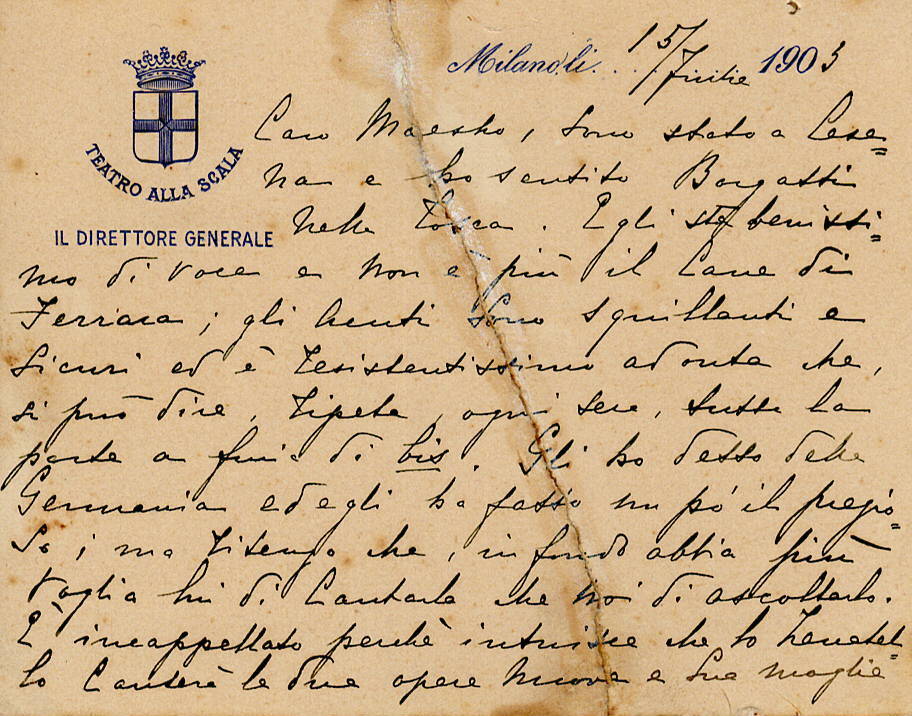 Milano, li 15/ 1903
TEATRO ALLA SCALA
IL DIRETTORE GENERALE
Caro Maestro, sono stato a Cese=
na e ho sentito Borgatti
nella Tosca. Egli sta benissi=
mo di voce e non è più il cane di
Ferrara; gli acuti sono squillanti e
sicuri ed è resistentissimo ad onta che,
si può dire, ripeta, ogni sera, tutta la
parte a furia di bis. Gli ho detto della
Germania ed egli ha fatto un pò il prezio=
so; ma ritengo che, in fondo abbia più
voglia lui di cantarla che noi di ascoltarlo.
E' incappellato perchè intuisce che lo Zenatel=
lo canterà le due opere nuove e sua moglie